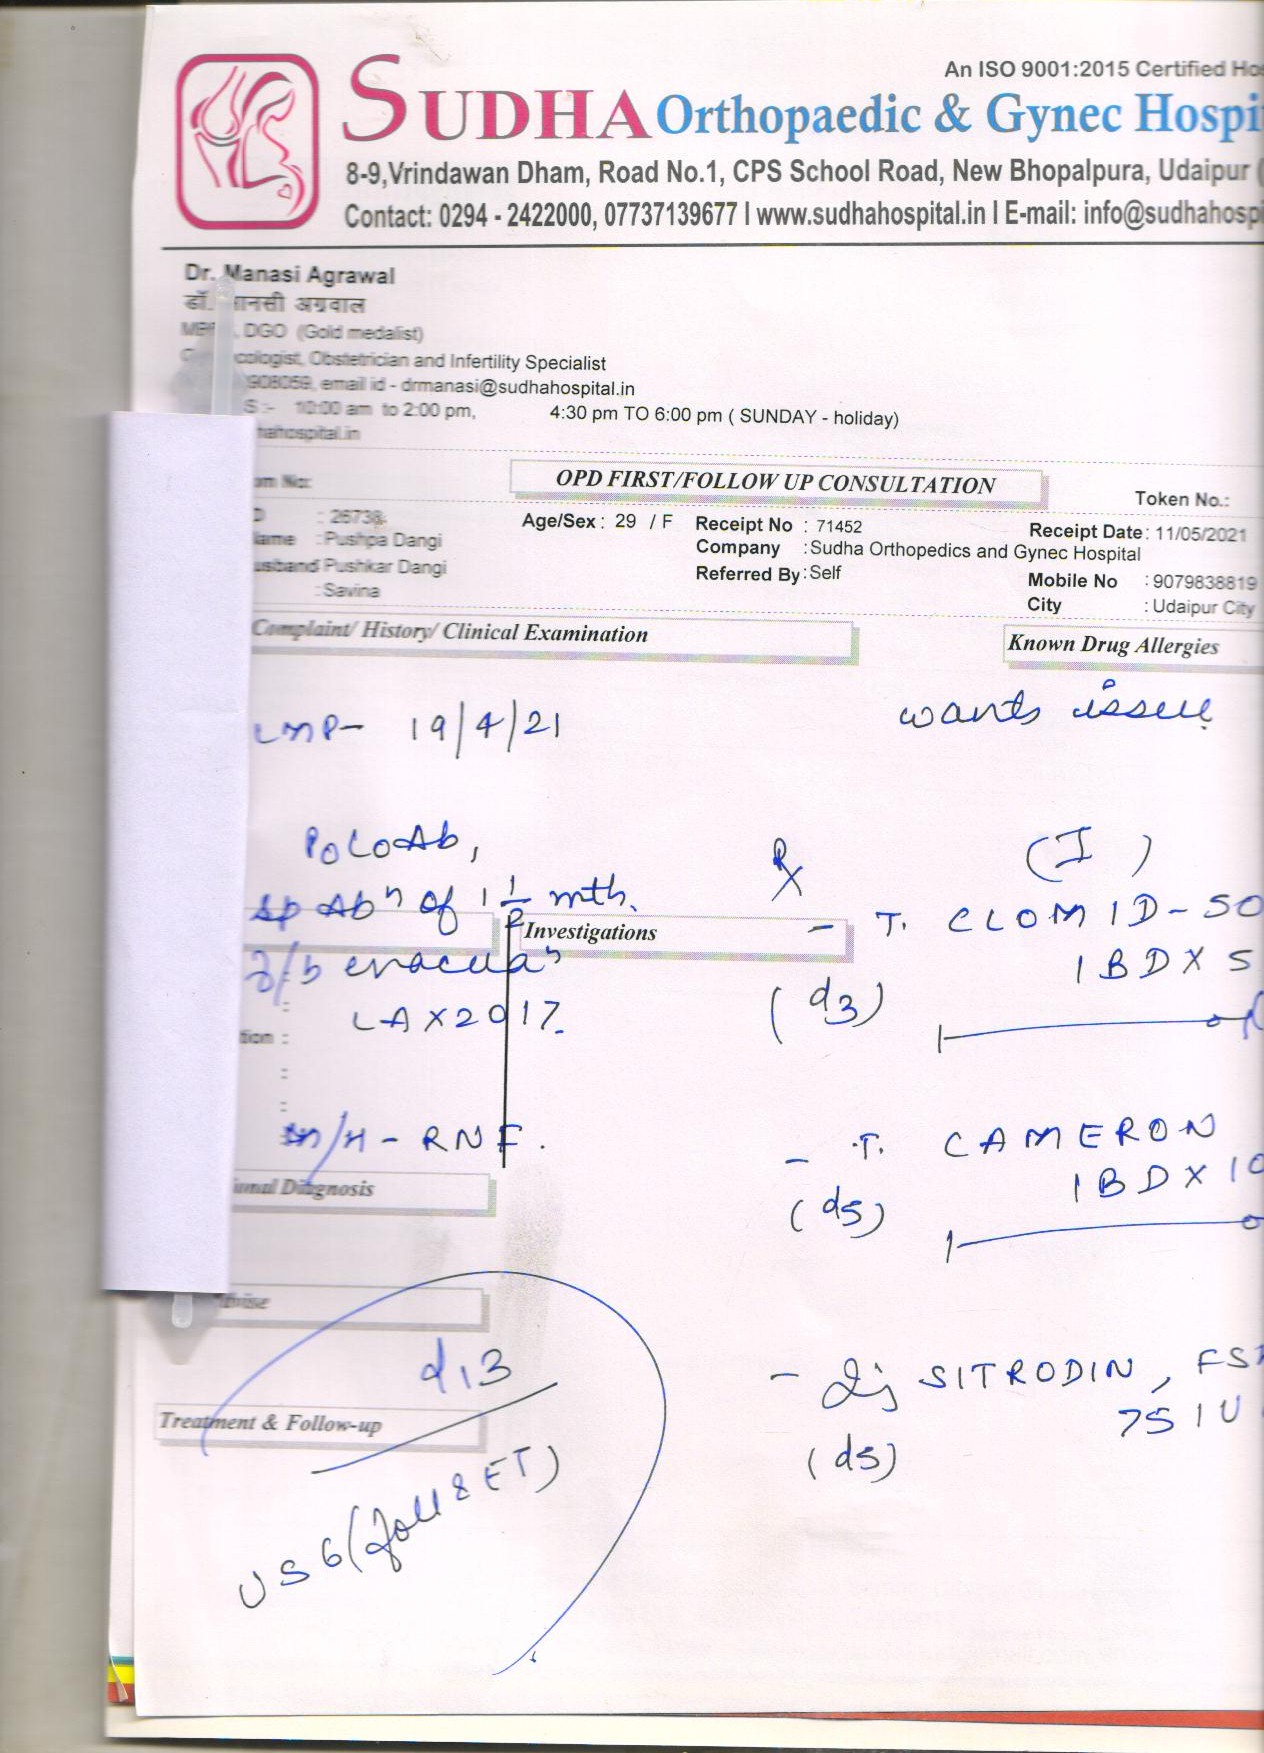 An ISO 9001:2015 Certified Ho
SUDHA Orthopaedic & Gynec Hospi
8-9,Vrindawan Dham, Road No.1, CPS School Road, New Bhopalpura, Udaipur (
Contact: 0294 - 2422000, 07737139677 I www.sudhahospital.in I E-mail: info@sudhahospi
Dr. Manasi Agrawal
डॉ. मानसी अग्रवाल
DGO (Gold medalist)
cologist, Obstetrician and Infertility Specialist
908059, email id - drmanasi@sudhahospital.in
S :- 10:00 am to 2:00 pm, 4:30 pm TO 6:00 pm ( SUNDAY - holiday)
hahospital.in
OPD FIRST/FOLLOW UP CONSULTATION
om No: Token No.:
D : 26738 Age/Sex : 29 / F Receipt No : 71452 Receipt Date: 11/05/2021
ame : Pushpa Dangi Company : Sudha Orthopedics and Gynec Hospital
usband Pushkar Dangi Referred By: Self Mobile No : 9079838819
: Savina City : Udaipur City
Complaint/ History/ Clinical Examination Known Drug Allergies
LMP- 19/4/21 wants issue
P0L0Ab, Rx (I)
sp Abn of 1 1/2 mth. - T. CLOMID-50
Investigations
1 BD X 5
f/b evacuan (d3)
LAX2017.
tion :
M/H - RNF. - T. CAMERON
1 BD X 10
(d5)
ional Diagnosis
dvise
d13 - Inj SITRODIN, FS
75 IU
Treatment & Follow-up
(d5)
USG (foll & ET)